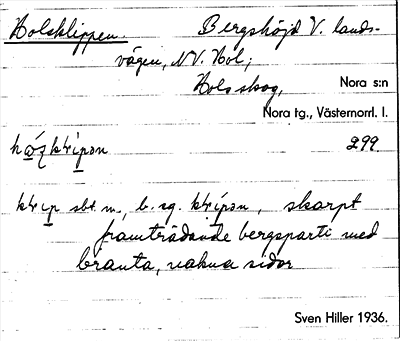 Holsklippen. Bergshöjd V. lands-
vägen, NV. Hol;
Hols skog, Nora s:n
Nora tg., Västernorrl. l.
299
sbt. m., b. sg. skarpt
framträdande bergsparti med
branta, nakna sidor
Sven Hiller 1936.